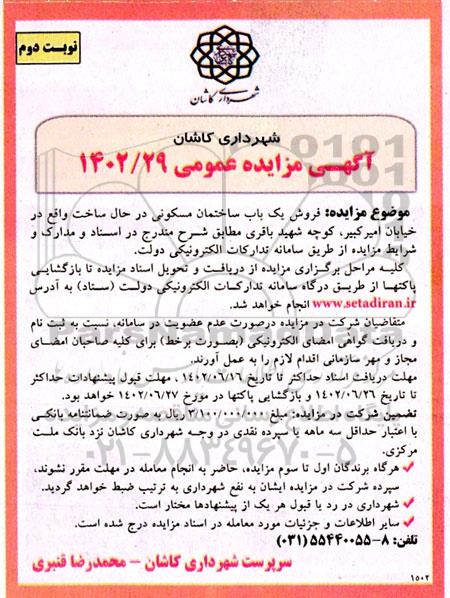 نوبت دوم
شهرداری کاشان
شهرداری کاشان
آگهـی مزایده عمومی ۱۴۰۲/۲۹
موضوع مزایده: فروش یک باب ساختمان مسکونی در حال ساخت واقع در
خیابان امیرکبیر، کوچه شهید باقری مطابق شرح مندرج در اسناد و مدارک و
شرایط مزایده از طریق سامانه تدارکات الکترونیکی دولت.
کلیه مراحل برگزاری مزایده از دریافت و تحویل اسناد مزایده تا بازگشایی
پاکتها از طریق درگاه سامانه تدارکات الکترونیکی دولت (ستاد) به آدرس
www.setadiran.ir انجام خواهد شد.
متقاضیان شرکت در مزایده درصورت عدم عضویت در سامانه، نسبت به ثبت نام
و دریافت گواهی امضای الکترونیکی (بصورت برخط) برای کلیه صاحبان امضای
مجاز و مهر سازمانی اقدام لازم را به عمل آورند.
مهلت دریافت اسناد حداکثر تا تاریخ ۱۴۰۲/۰۶/۱۶ ، مهلت قبول پیشنهادات حداکثر
تا تاریخ ۱۴۰۲/۰۶/۲۶ و بازگشایی پاکتها در مورخ ۱۴۰۲/۰۶/۲۷ خواهد بود.
تضمین شرکت در مزایده: مبلغ ۳/۱۰۰/۰۰۰/۰۰۰ ریال به صورت ضمانتنامه بانکی
با اعتبار حداقل سه ماهه یا سپرده نقدی در وجه شهرداری کاشان نزد بانک ملت
مرکزی.
✓ هرگاه برندگان اول تا سوم مزایده، حاضر به انجام معامله در مهلت مقرر نشوند،
سپرده شرکت در مزایده ایشان به نفع شهرداری به ترتیب ضبط خواهد گردید.
✓ شهرداری در رد یا قبول هر یک از پیشنهادها مختار است.
✓ سایر اطلاعات و جزئیات مورد معامله در اسناد مزایده درج شده است.
تلفن: ۸-۵۵۴۴۰۰۵۵ (۰۳۱)
سرپرست شهرداری کاشان - محمدرضا قنبری
۱۵۰۲
۰۲۱-۸۸۳۴۹۶۷۰-۵